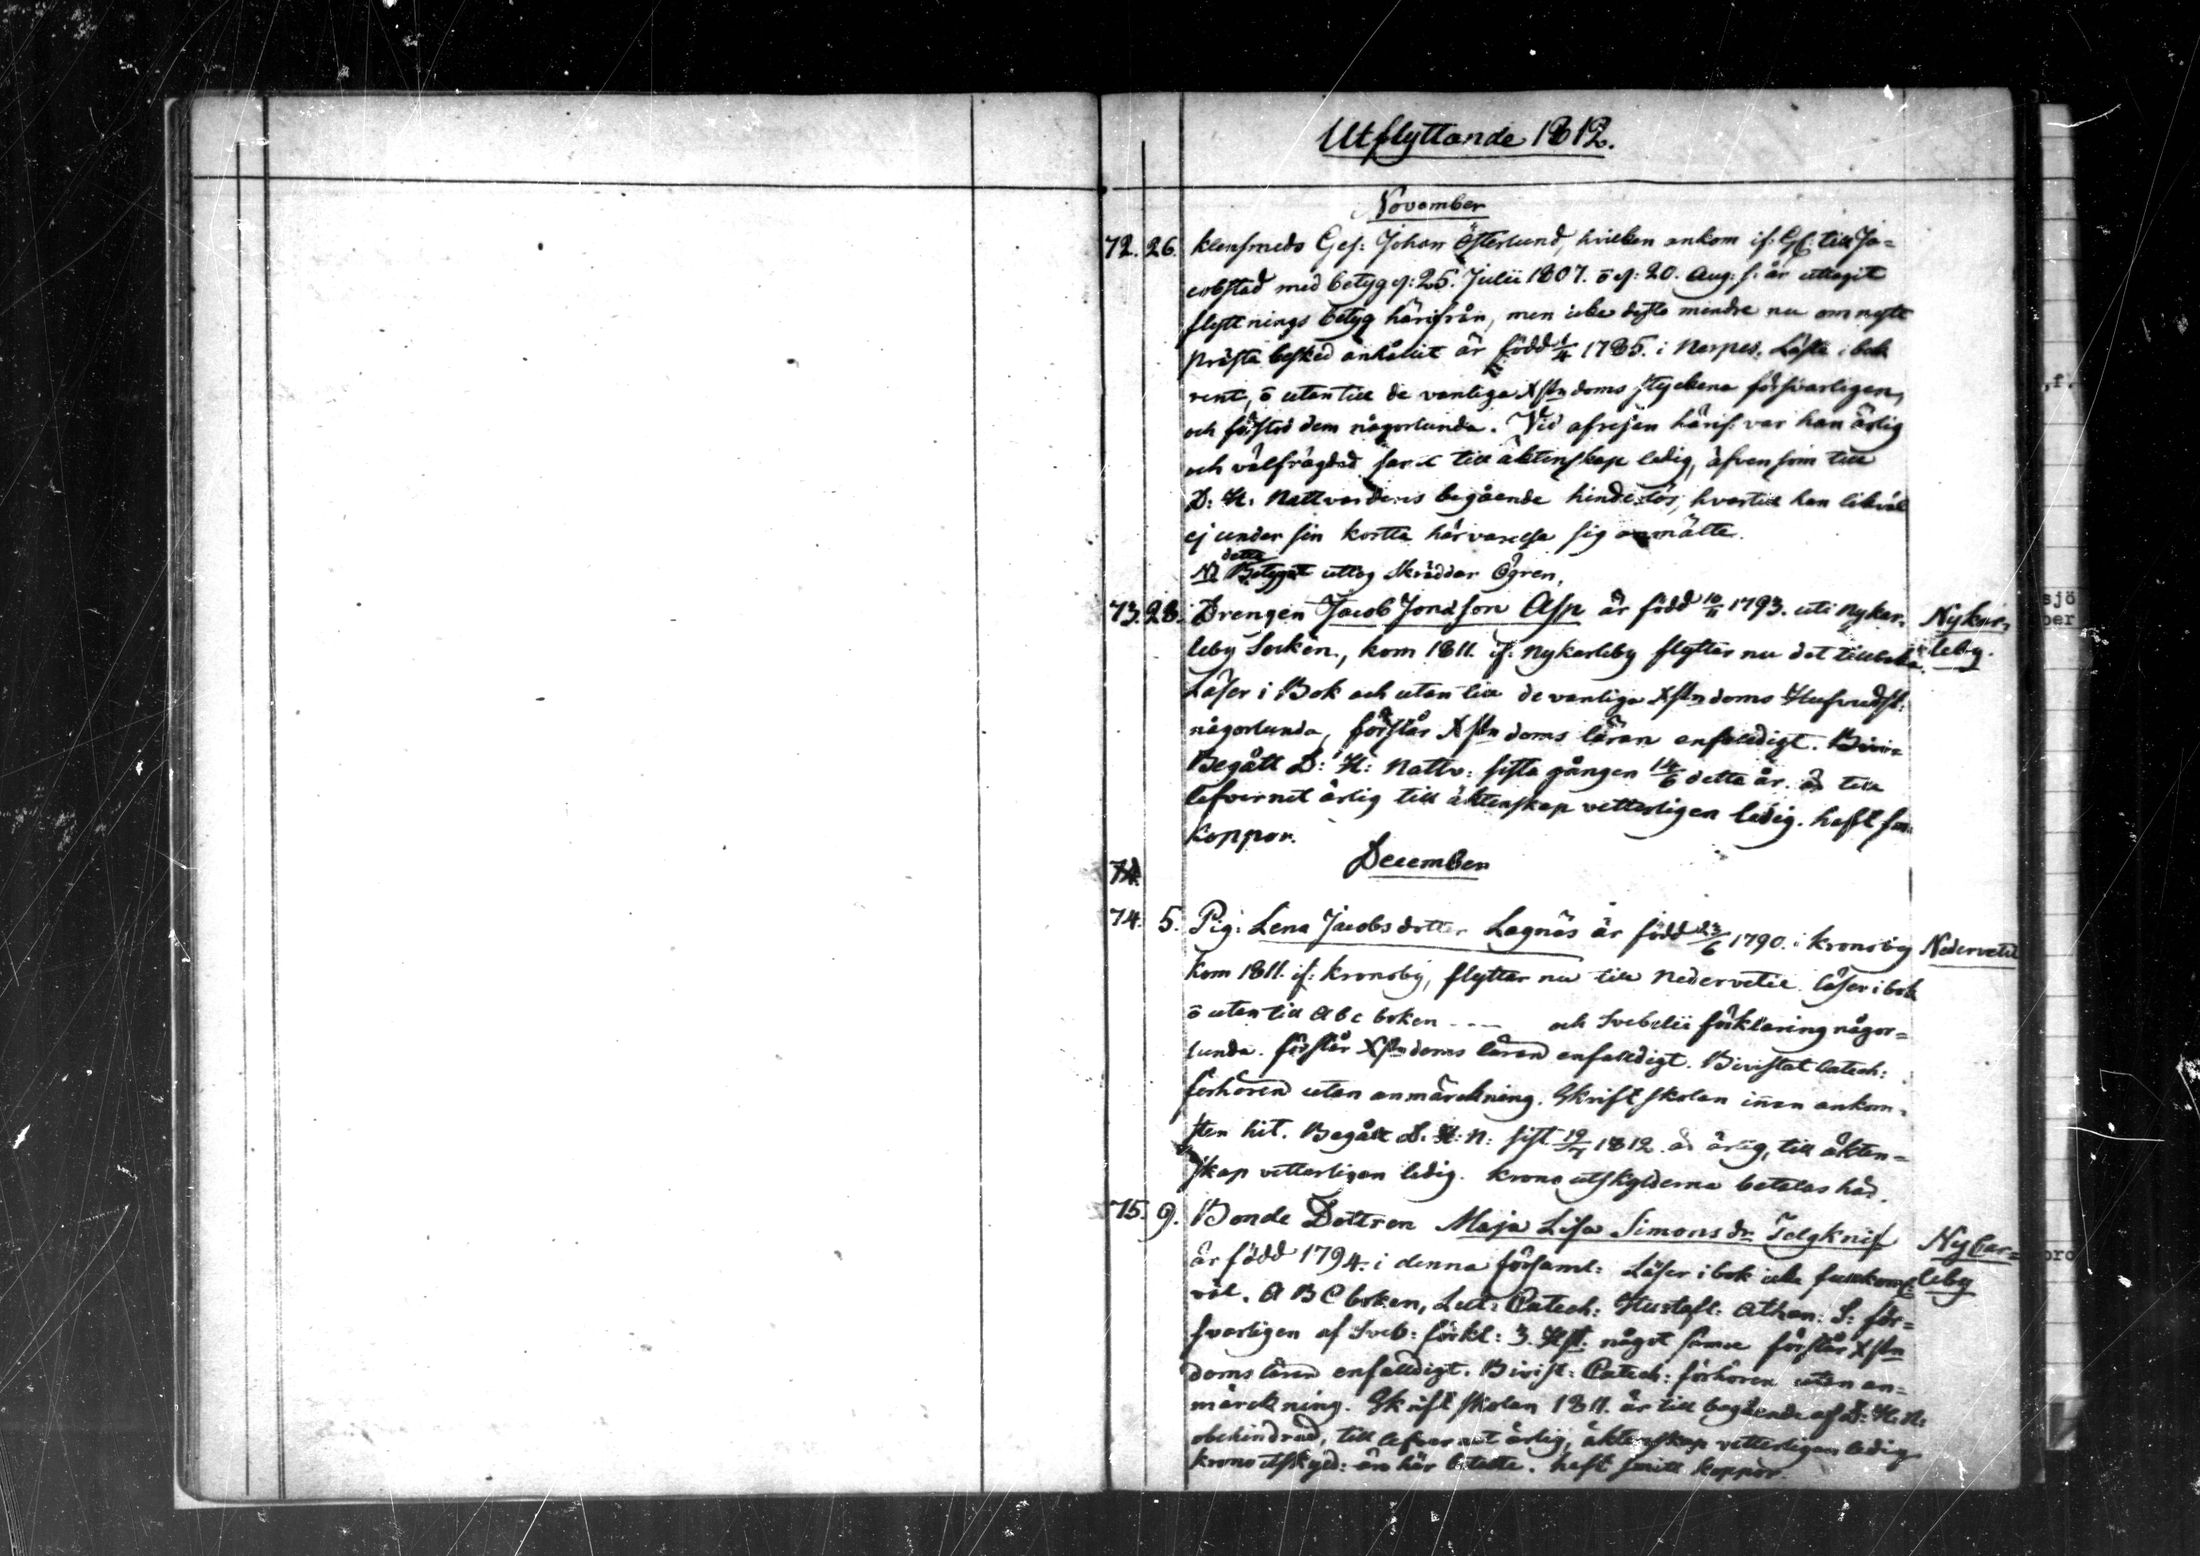 Utflyttande 1812.
November
72. 26. Klensmeds Ges: Johan Österlund, hvilken ankom if: till Ja=
cobstad med betyg af: 25. Julii 1807. ö af: 20. Aug: f: år uttagit
flyttnings betyg härifrån, men icke desto mindre nu om nytt
prästa besked anhållit är född 1/4 1785. i Nerpes. Läste i bok
rent, ö utantill de vanliga Xstndoms styckena försvarligen,
och förstod dem någorlunda. Vid afresan härif: var han ärlig
och välfrägdad samt till äktenskap ledig, äfvensom till
D: H: Nattvardens begående hinderlös, hvartill han likväl
ej under sin kortta härvarelse sig anmälte.
detta
NB Betyget uttog Skräddar Ögren.
73. 28. Drengen Jacob Jonsson Asp är född 10/11 1793. uti Nykar= Nykar=
leby Socken., kom 1811. if: Nykarleby flyttar nu dit tillbaka. leby.
Läser i Bok och utan till de vanliga Xstndoms Hufvudst:
någorlunda, förstår Xstndoms läran enfaldigt.
Begått D: H: Nattv: sista gången 14/6 detta år. är till
lefvernet ärlig till äktenskap vetterligen ledig. haft sm:
koppor.
December
74.
74. 5. Pig: Lena Jacobsdotter Lagnäs är född 23/6 1790. i Kronoby Nedervetil
kom 1811. if: Kronoby, flyttar nu till Nedervetil. läser i bok
ö utan till Abc boken ---- och Svebelii förklaring någor=
lunda. förstår Xstndoms läran enfaldigt. Bivistat Catech:
förhören utan anmärckning. Skriftskolan innan ankom=
sten hit. Begått D. H: N: sist 19/7 1812. är ärlig, till äkten=
skap vetterligen ledig. Krono utskylderna betalas här.
75. 9. Bonde Dottren Maja Lisa Simonsdr. Telgknif Nycar=
är född 1794. i denna församl: Läser i bok icke fullkoml: leby
väl. A B C boken, Lut: Catech: Hustafl: Athan: S: för=
svarligen af Sveb: förkl: 3. Hst: något förstår Xstn
doms läran enfaldigt. Bivist: Catech: förhören utan an=
märckning. Skriftskolan 1811. är till begående af D: H: N:
obehindrad, till lefvernet ärlig, äktenskap vetterligen ledig
Krono utskyld: äro här betalte. haft smitt koppor.